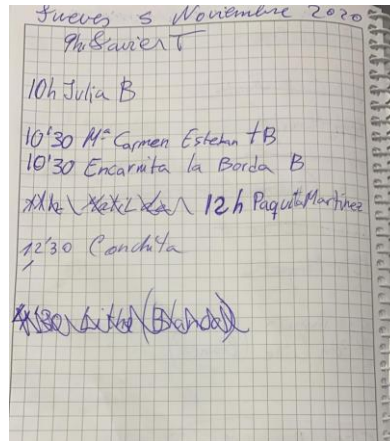 Jueves 5 Noviembre 2020
9h Xavier T
10h Julia B
10'30 Mª Carmen Esteban tB
10'30 Encarnita la Borda B
12h Paquita Martinez
12'30 Conchita